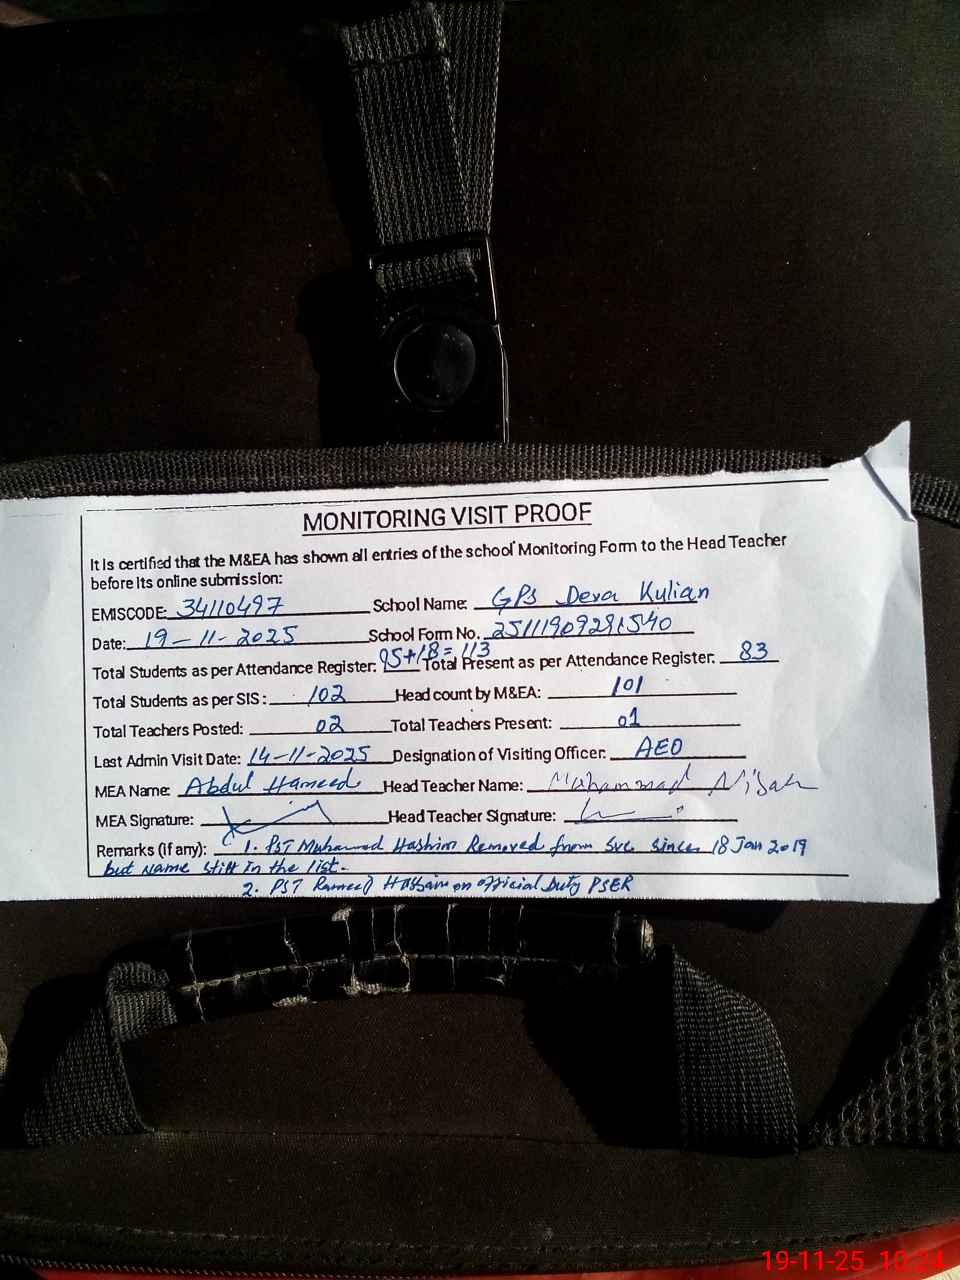 MONITORING VISIT PROOF
It is certified that the M&EA has shown all entries of the school Monitoring Form to the Head Teacher
before its online submission:
EMISCODE: 34110497 School Name: GPS Deva Kulian
Date: 19-11-2025 School Form No. 
Total Students as per Attendance Register: 95+18=113 Total Present as per Attendance Register. 83
Total Students as per SIS: 102 Head count by M&EA: 101
Total Teachers Posted: 02 Total Teachers Present: 01
Last Admin Visit Date: 14-11-2025 Designation of Visiting Officer. AEO
MEA Name: Abdul Hameed Head Teacher Name: Muhammad
MEA Signature: Head Teacher Signature:
Remarks (if any): 1. PST Muhammad Hashim Removed from Svc since 18 Jan 2019
but name still in the list.
2. PST Hassain on official Duty PSER
19-11-25 10:24